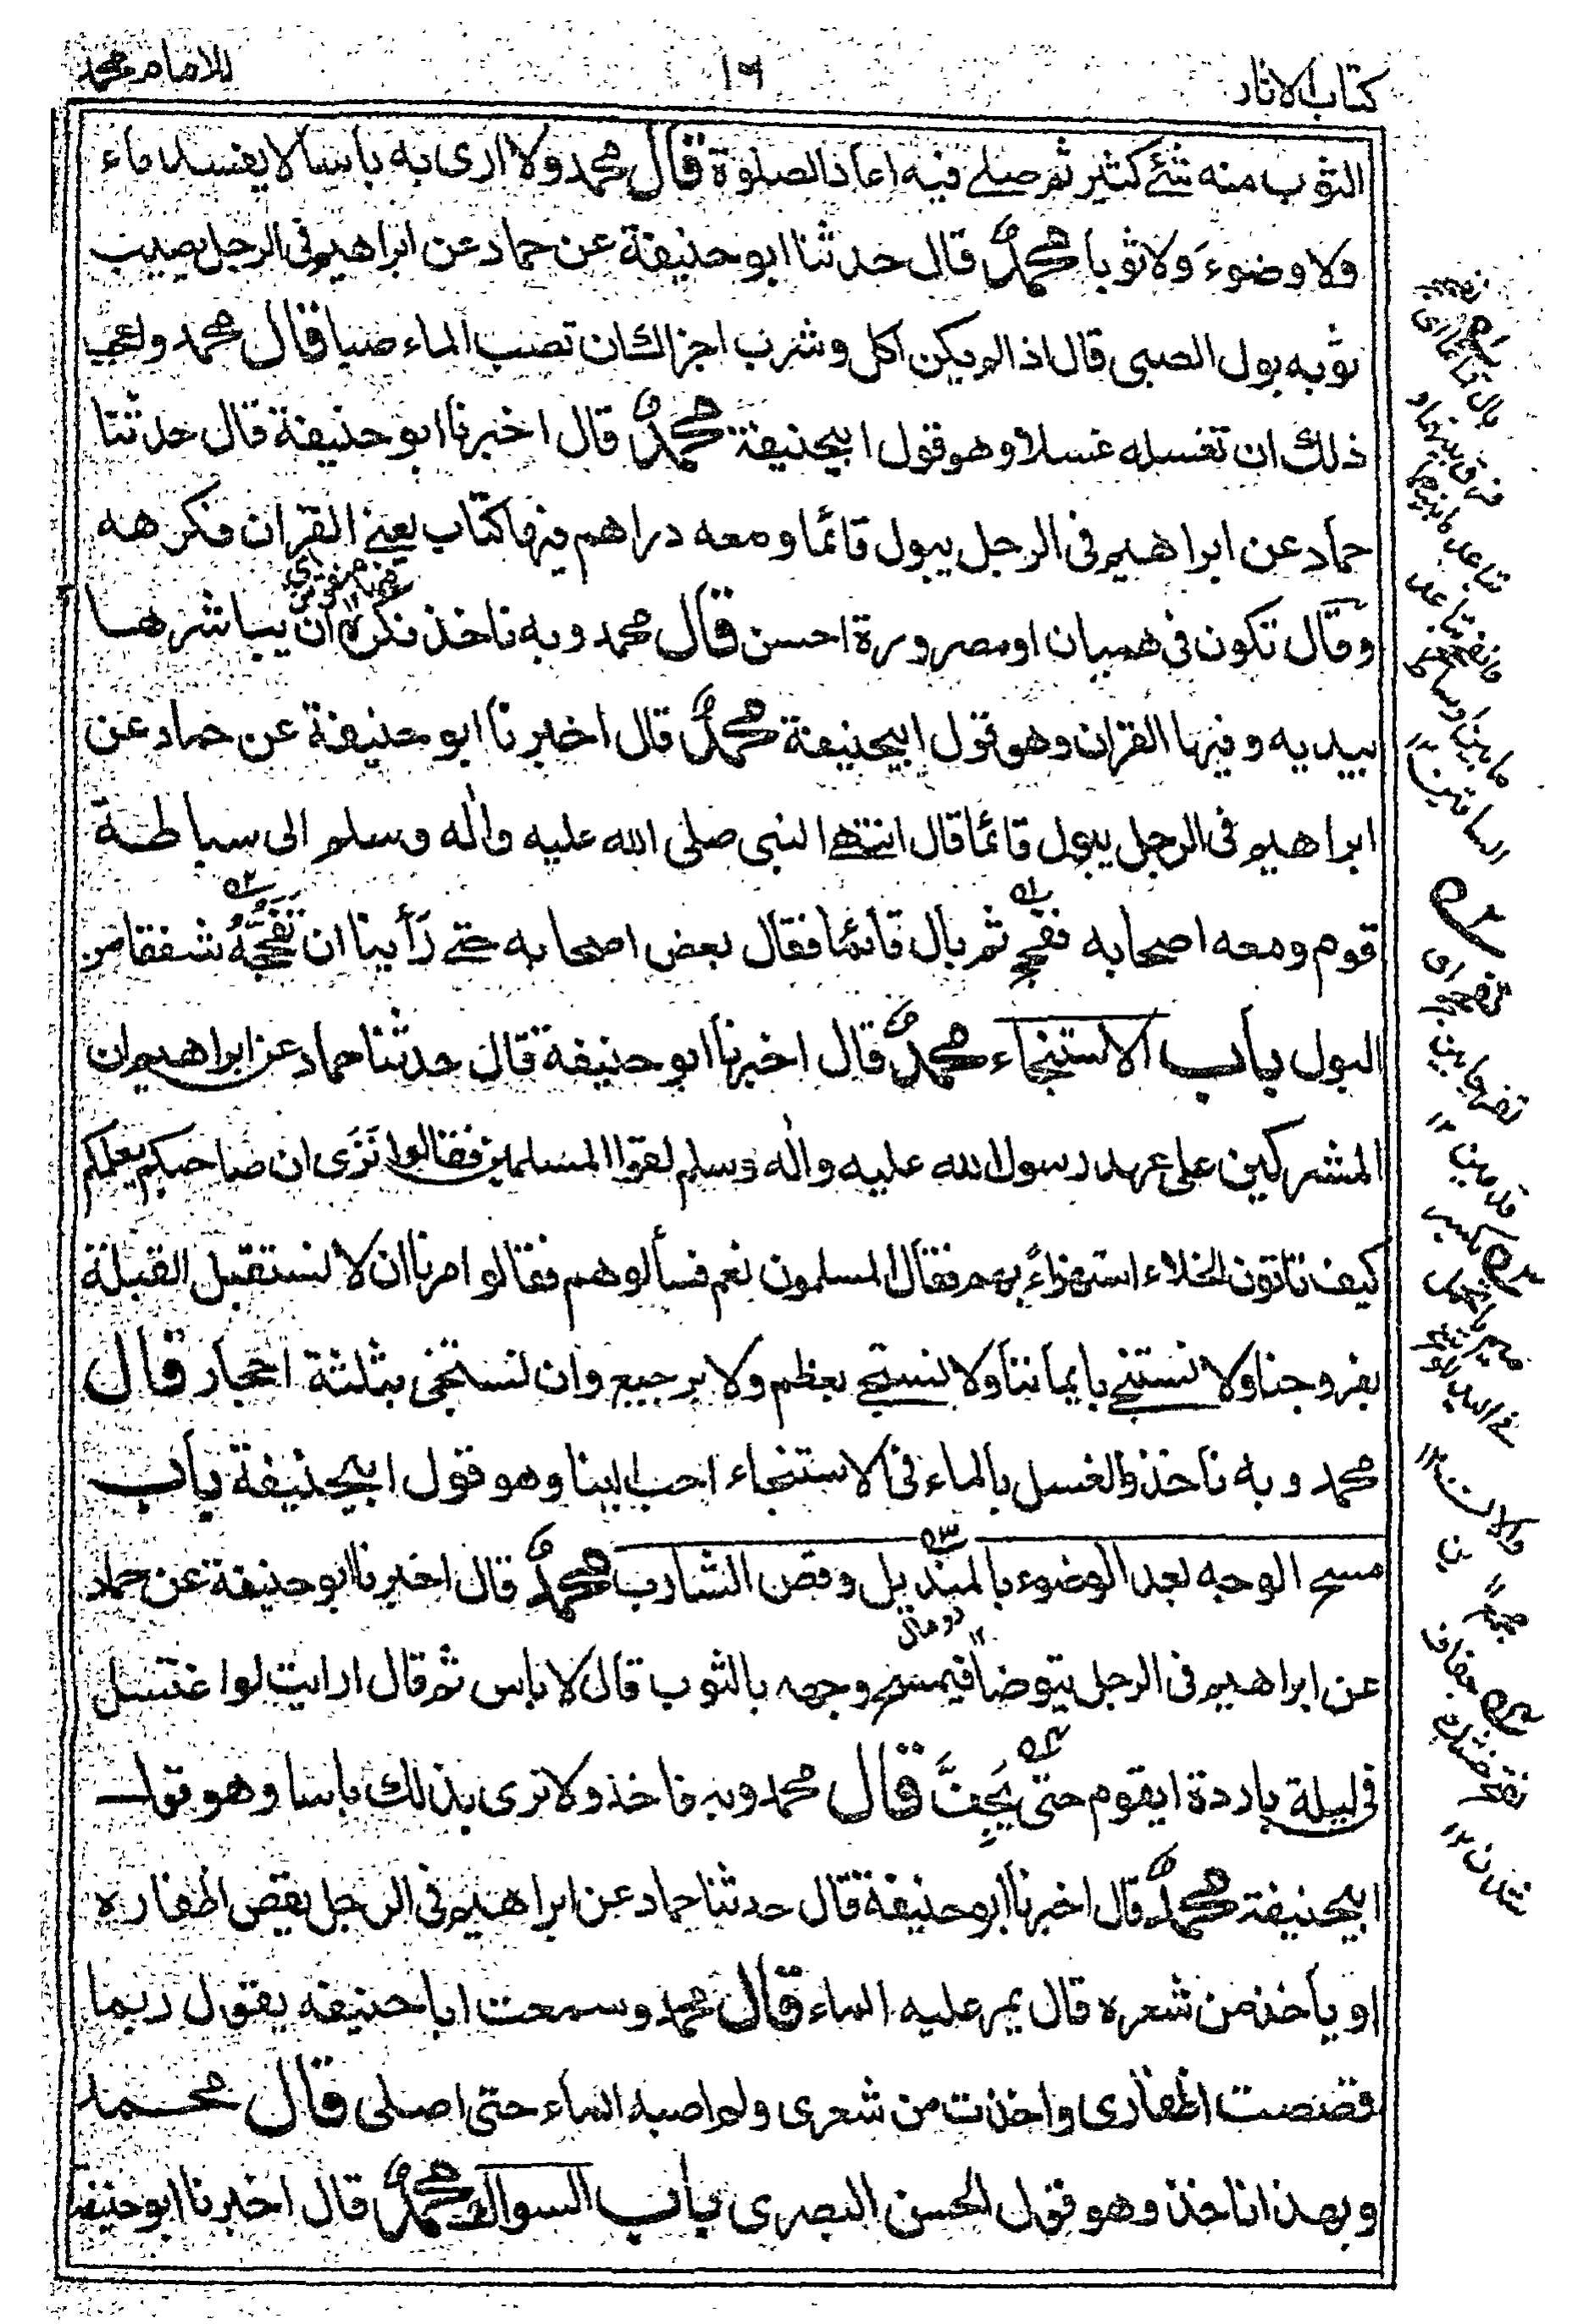 كتاب الاثار
١٦
للامام محمد
الثوب منه شئ كثير ثم صلے فيه اعاد الصلوة قال محمد ولا ارى به باسا لا يفسد ماء
ولا وضوءَ ولا ثوبا محمدٌ قال حدثنا ابو حنيفة عن حماد عن ابراهيم فى الرجل يصيب
ثوبه بول الصبى قال اذا لم يكن اكل وشرب اجزاك ان تصب الماء صبا قال محمد واعجب
ذلك ان تغسله غسلا وهو قول ابيحنيفة محمدٌ قال اخبرنا ابو حنيفة قال حدثنا
حماد عن ابراهيم فى الرجل يبول قائما ومعه دراهم فيها كتاب يعنے القران فكرهه
وقال تكون فى هميان او مصرورة احسن قال محمد وبه ناخذ نكره ان يباشرها
بيديه وفيها القران وهو قول ابيحنيفة محمدٌ قال اخبرنا ابو حنيفة عن حماد عن
ابراهيم فى الرجل يبول قائما قال انتهے النبى صلى الله عليه واٰله وسلم الى سباطة
قوم ومعه اصحابه ففحج ثم بال قائما فقال بعض اصحابه حتے رَأينا ان تَفَحُّجَهُ شفقا من
البول باب الاستنجاء محمدٌ قال اخبرنا ابو حنيفة قال حدثنا حماد عن ابراهيم ان
المشركين على عهد رسول الله عليه واٰله وسلم لقوا المسلمين فقالوا نَرٰى ان صاحبكم يعلمكم
كيف تاتون الخلاء استهزاءً بهم فقال المسلمون نعم فسألوهم فقالوا امرنا ان لا نستقبل القبلة
بفروجنا ولا نستنجے بايماننا ولا نستنجے بعظم ولا برجيع وان نستنجى بثلثة احجار قال
محمد وبه ناخذ والغسل بالماء فى الاستنجاء احب الينا وهو قول ابيحنيفة باب
مسح الوجه بعد الوضوء بالمنديل وقص الشارب محمدٌ قال اخبرنا ابو حنيفة عن حماد
عن ابراهيم فى الرجل يتوضا فيمسح وجهه بالثوب قال لا باس ثم قال ارايت لو اغتسل
فى ليلة باردة ايقوم حتى يَجِفَّ قال محمد وبه ناخذ ولا نرى بذلك باسا وهو قول
ابيحنيفة محمدٌ قال اخبرنا ابو حنيفة قال حدثنا حماد عن ابراهيم فى الرجل يقص اظفاره
او ياخذ من شعره قال يمر عليه الماء قال محمد وسمعت ابا حنيفه يقول ربما
قصصت اظفارى واخذت من شعرى ولم اصبه الماء حتى اصلى قال محمد
وبهذا ناخذ وهو قول الحسن البصرى باب السواك محمدٌ قال اخبرنا ابو حنيفة
بال قائما اى
فرق بينهما و
تباعد ما بينهما
ما بين
الساقين ١٢
تفحج اى
تفريج ما بين
قدمين ١٢